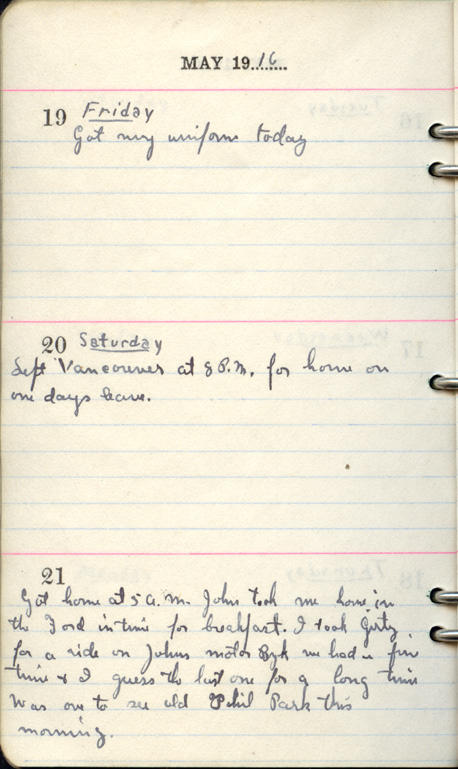 MAY 1916
19 Friday
Got my uniform today
20 Saturday
Left Vancouver at 8 P.M. for home on
one days leave.
21
Got home at 5 a.m. John took me home in
the Ford in time for breakfast. I took Gerty
for a ride on Johns motor Byk we had a fine
time & I guess the last one for a long time
Was over to see old Phil Park this
morning.